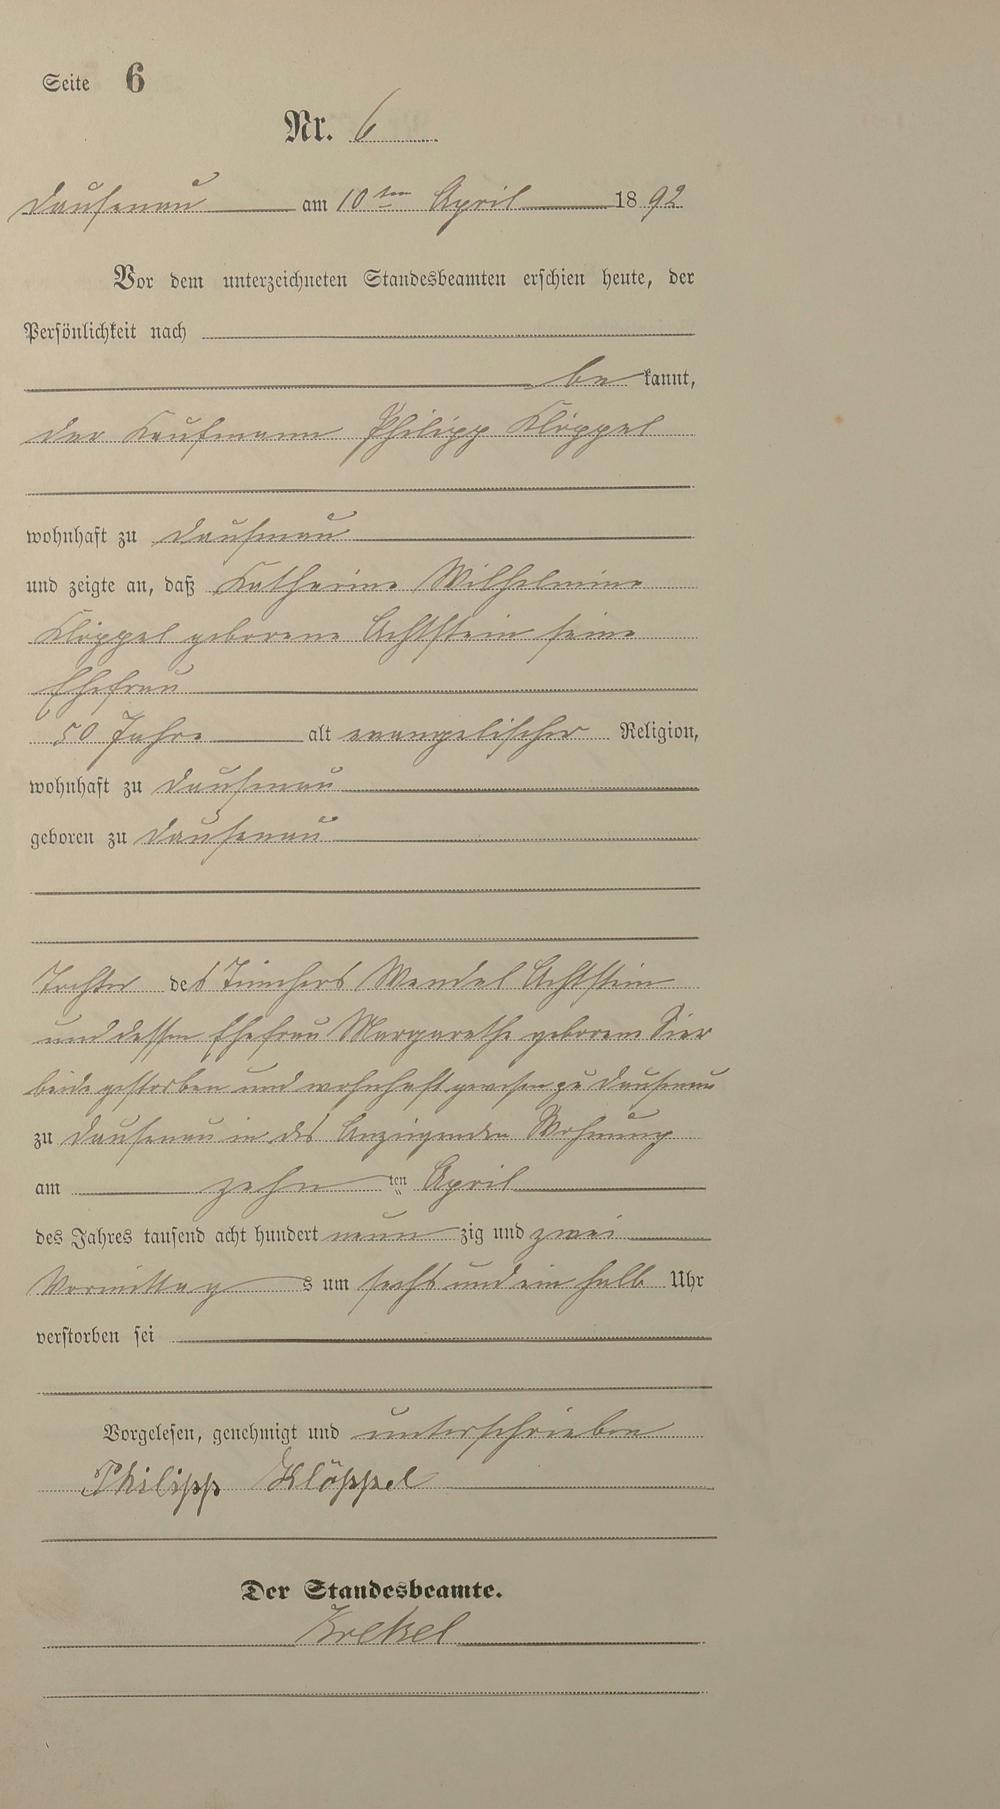 Seite 6
Nr. 6
Dausenau am 10ten April 1892
Vor dem unterzeichneten Standesbeamten erschien heute, der
Persönlichkeit nach
be kannt,
der Kaufmann Philipp Klöppel
wohnhaft zu Dausenau
und zeigte an, daß Katharine Wilhelmine
Klöppel geborene Achtstein seine
Ehefrau
50 Jahre alt evangelischer Religion,
wohnhaft zu Dausenau
geboren zu Dausenau
Tochter des Tünchers Wendel Achtstein
und dessen Ehefrau Margarethe geborene
beide gestorben und wohnhaft gewesen zu Dausenau
zu Dausenau in des Anzeigenden Wohnung
am zehn ten April
des Jahres tausend acht hundert neun zig und zwei
Vormittag s um sechs und ein halb Uhr
verstorben sei
Vorgelesen, genehmigt und unterschrieben
Philipp Klöppel
Der Standesbeamte.
Krekel